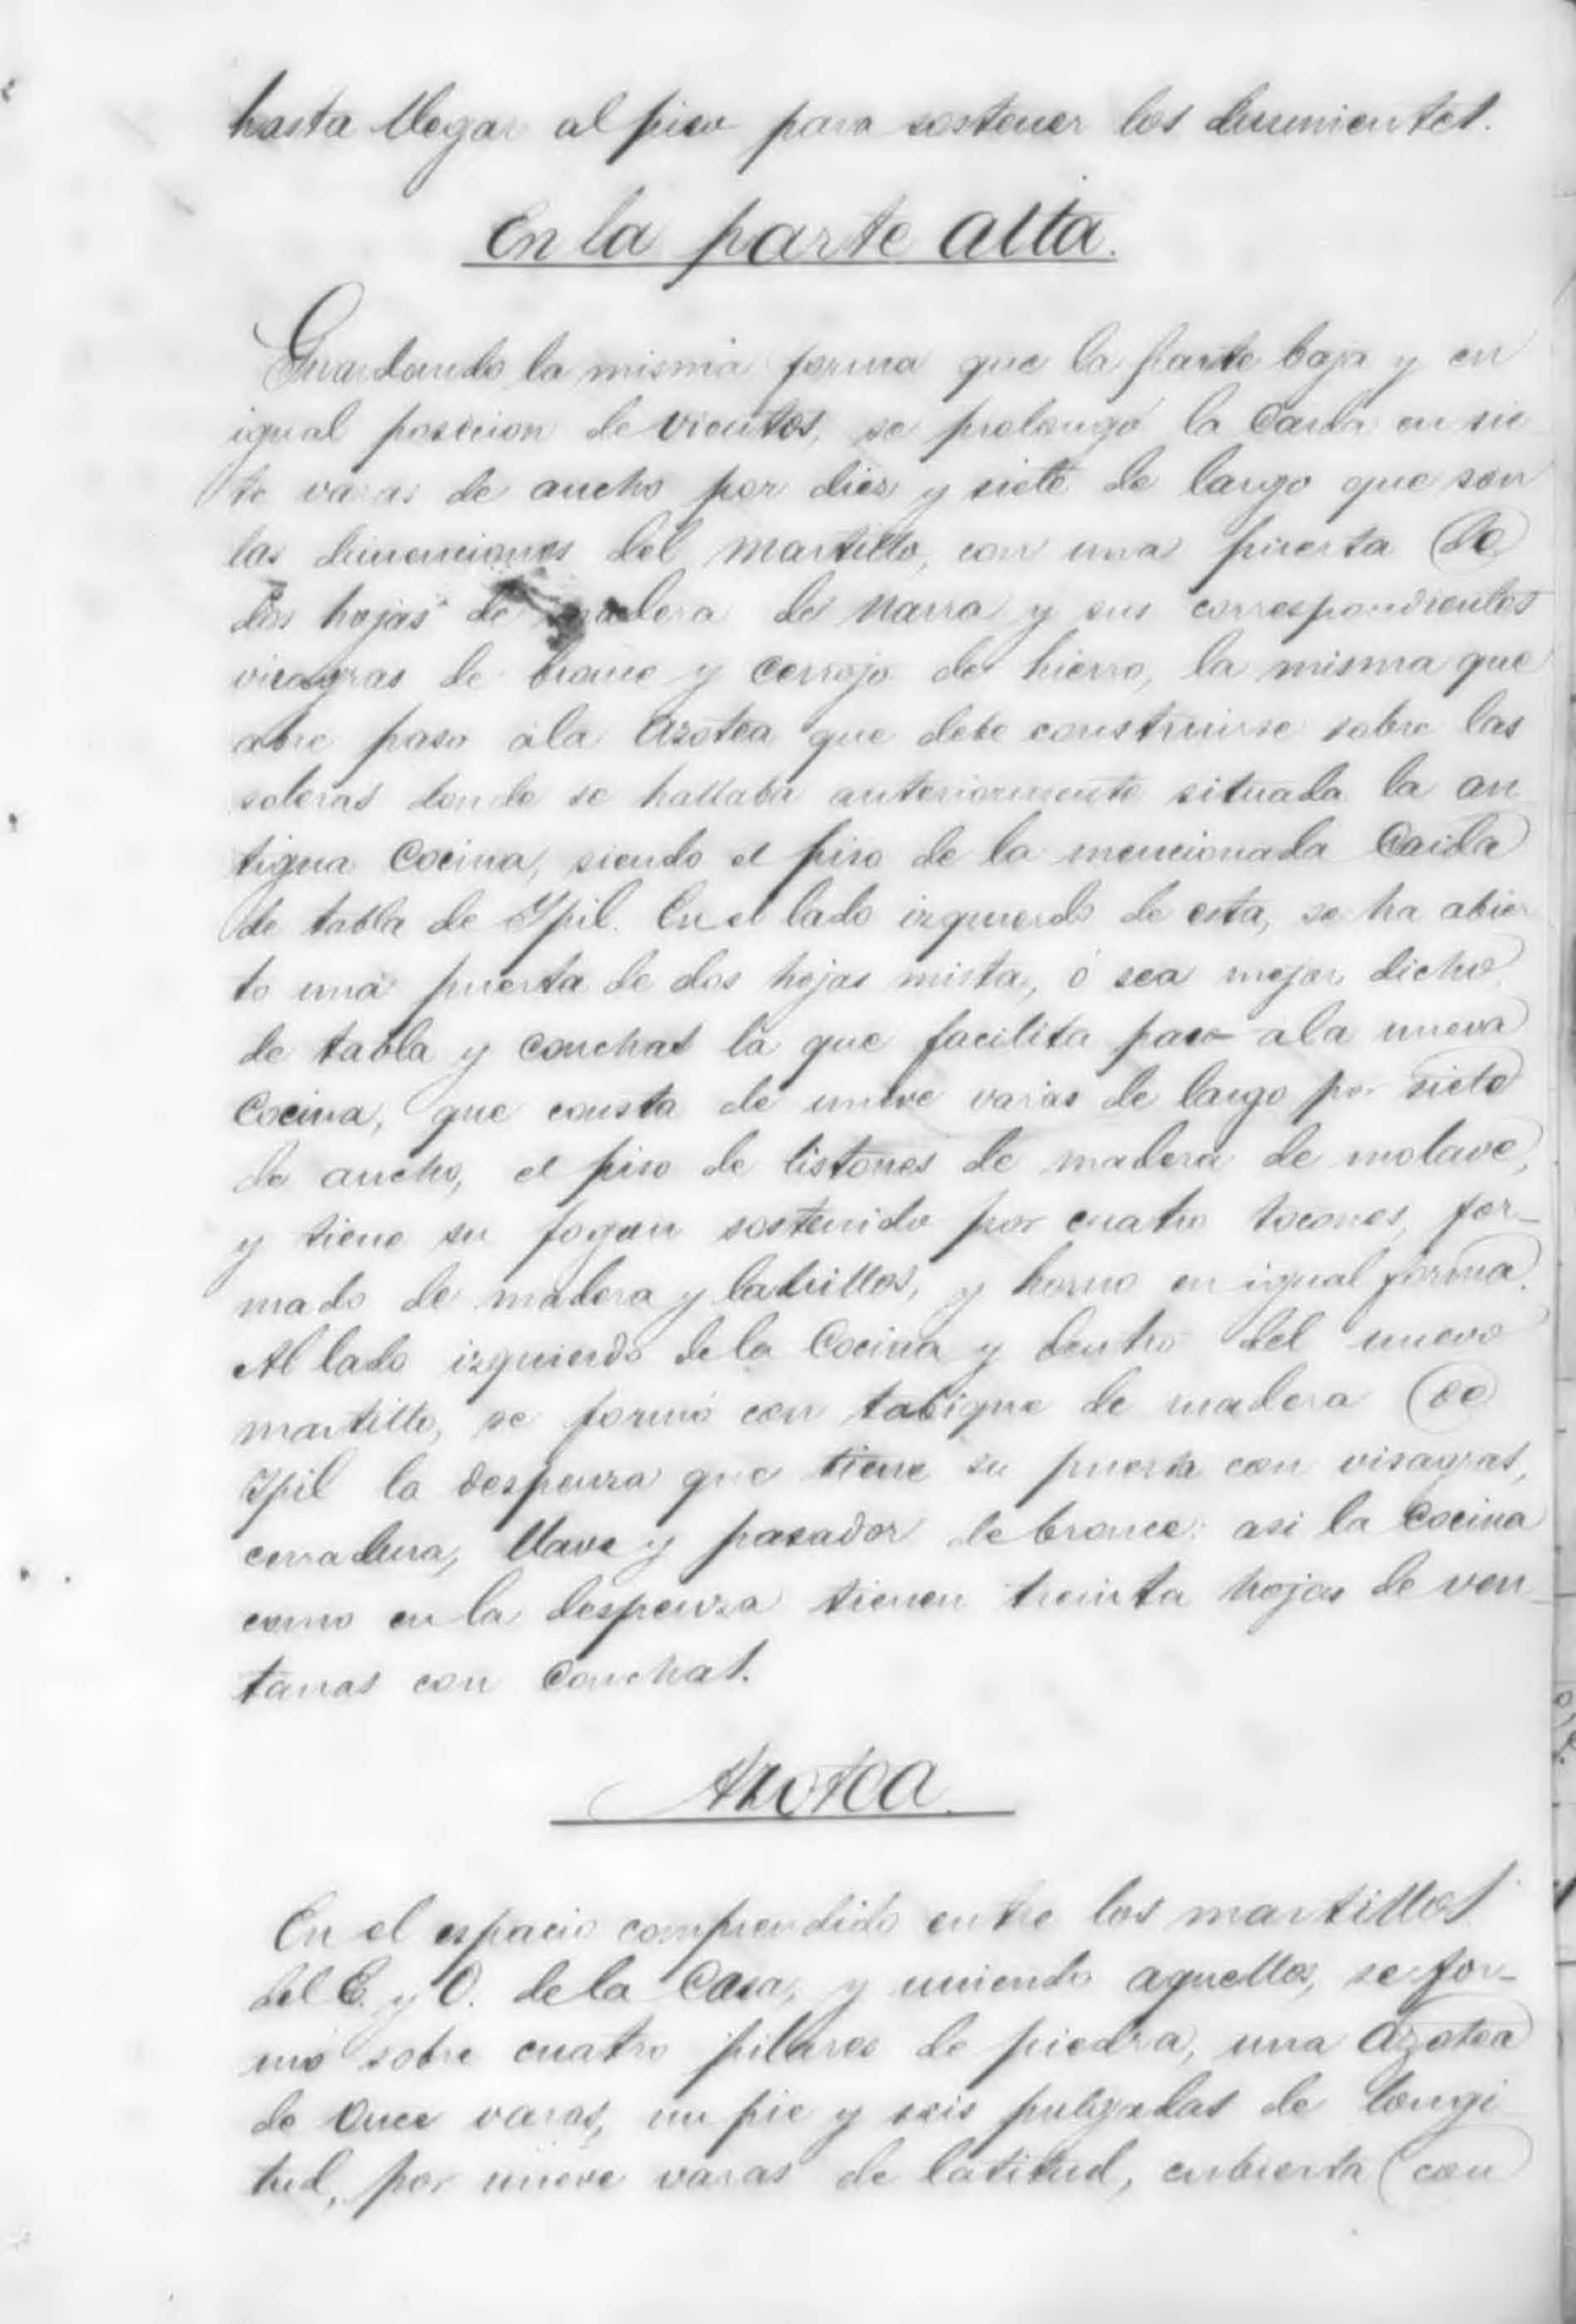 hasta llegar al piso para sostener los durmientes.
En la parte alta.
Guardando la misma forma que la parte baja y en
igual posicion de vientos, se prolongó la Caida en sie
te varas de ancho por diez y siete de largo que son
las dimenciones del martillo, con una puerta de
dos hojas de madera de narra y sus correspondientes
visagras de bronce y cerrojo de hierro, la misma que
abre paso ala Azotea que debe construirse sobre las
soleras donde se hallaba anteriormente situada la an
tigua Cocina, siendo el piso de la mencionada Caida
de tabla de Ypil. En el lado izquierdo de esta, se ha abier
to una puerta de dos hojas mista, ó sea mejor dicho
de tabla y conchas la que facilita paso ala nueva
Cocina, que consta de nueve varas de largo por siete
de ancho, el piso de listones de madera de molave,
y tiene su fogon sostenido por cuatro tocones, for-
mado de madera y ladrillos, y horno en igual forma.
Al lado izquierdo dela Cocina y dentro del nuevo
martillo, se formó con tabique de madera de
Ypil la despensa que tiene su puerta con visagras,
cerradura, llave y pasador de bronce: asi la Cocina
como en la despensa tienen treinta hojas de ven
tanas con Conchas.
Azotea.
En el espacio comprendido entre los martillos
del E. y O. dela Casa, y uniendo aquellos, se for-
mó sobre cuatro pilares de piedra, una Azotea
de Once varas, un pie y seis pulgadas de longi
tud, por nueve varas de latitud, cubierta con